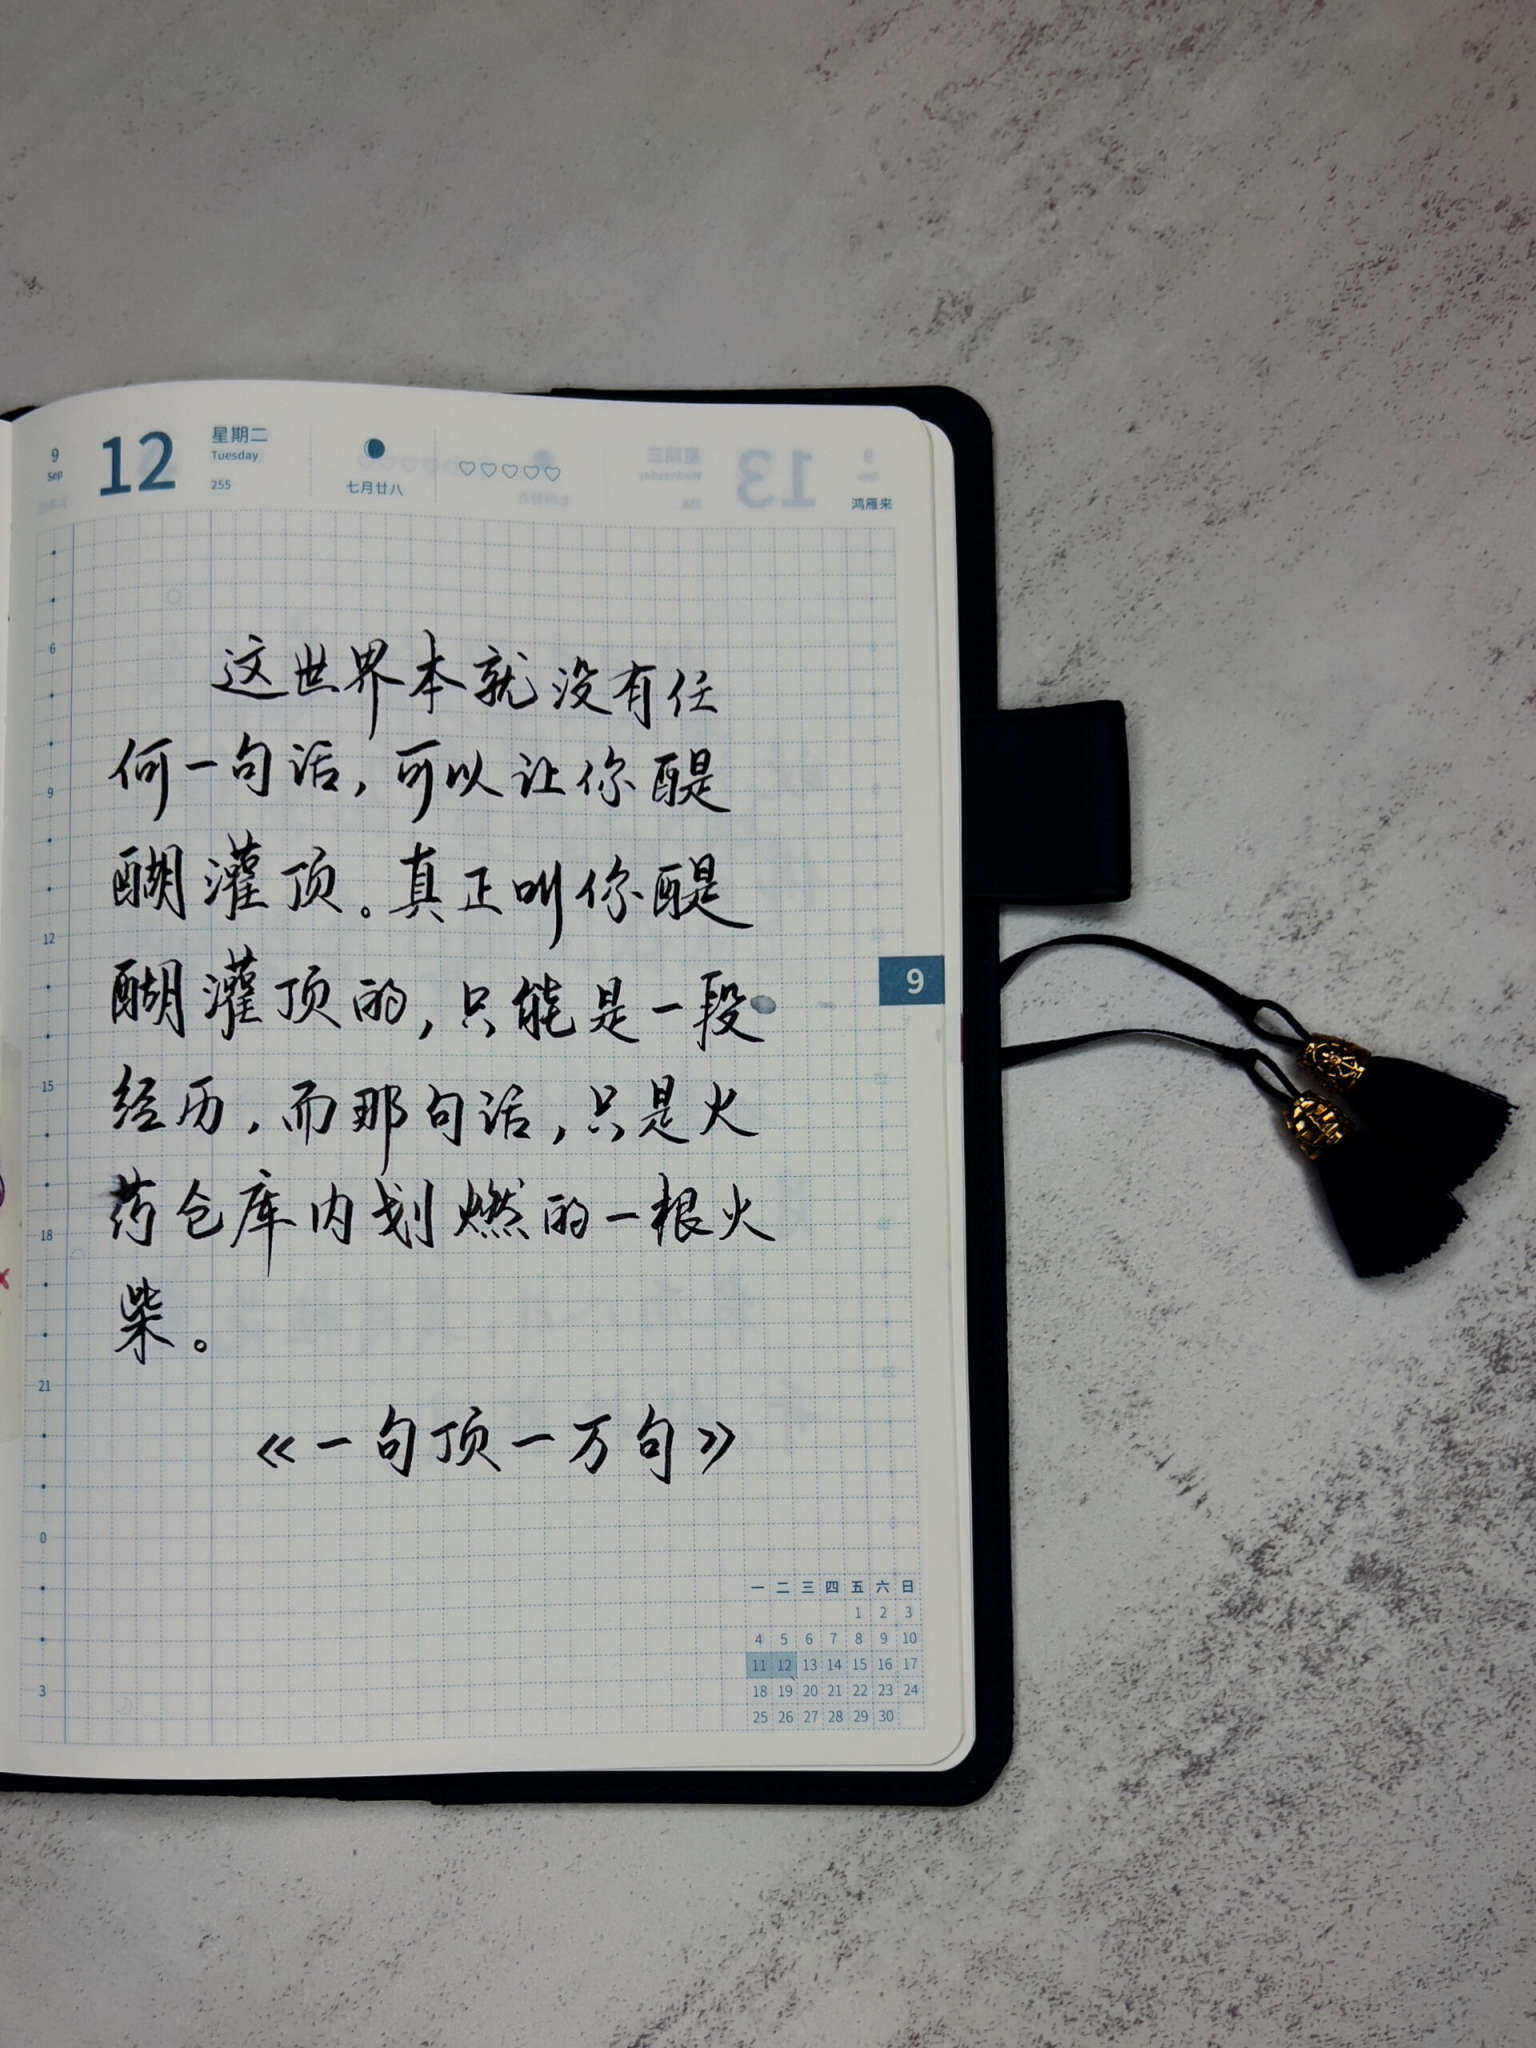 9
Sep
12
星期二
Tuesday
255
七月廿八
鸿雁来
6
9
12
15
18
21
0
3
这世界本就没有任
何一句话，可以让你醍
醐灌顶。真正叫你醍
醐灌顶的，只能是一段
经历，而那句话，只是火
药仓库内划燃的一根火
柴。
《一句顶一万句》
9
一 二 三 四 五 六 日
1 2 3
4 5 6 7 8 9 10
11 12 13 14 15 16 17
18 19 20 21 22 23 24
25 26 27 28 29 30